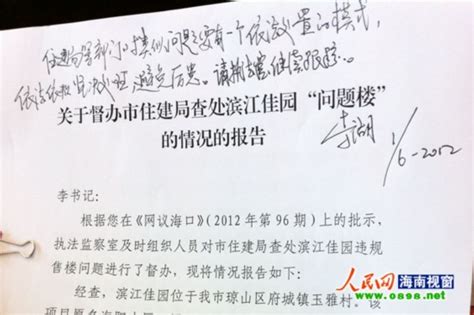 住建局等部门对类似问题要有一个依法处置的模式，
依法依规
关于督办市住建局查处滨江佳园“问题楼”
的情况的报告
1/6-2012
李书记：
根据您在《网议海口》（2012年第96期）上的批示，
执法监察室及时组织人员对市住建局查处滨江佳园违规
售楼问题进行了督办，现将情况报告如下：
经查，滨江佳园位于我市琼山区府城镇玉雅村。该
人民网 海南视窗
www.0898.net